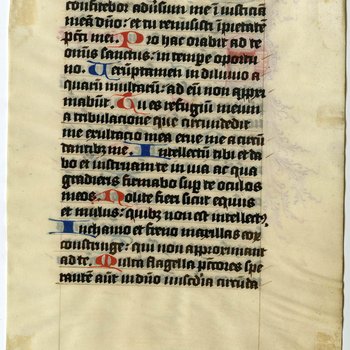 confitebor adusum me iniusticia
meā dño: et tu remisisti ipietatē
pctī mei. Pro hac orabit ad te
omīs sanctus: in tempe oportu
no. Uerūptamen in diluuio a
quarū multarū: ad eū non appri
mabūt. Tu es refugiū meum
a tribulacione que circūdedit
me exultacio mea erue me a circū
dantibz me. Intellectū tibi et da
bo et instruam te in uia ac qua
gradieris firmabo sup te oculos
meos. Nolite fieri sicut equus
et mulus: quibz non est intellect9.
In chamo et freno maxillas eoꝝ
constringe: qui non approximant
ad te. Multa flagella pctores spe
rantē aūt in dño misc̄dia circūda